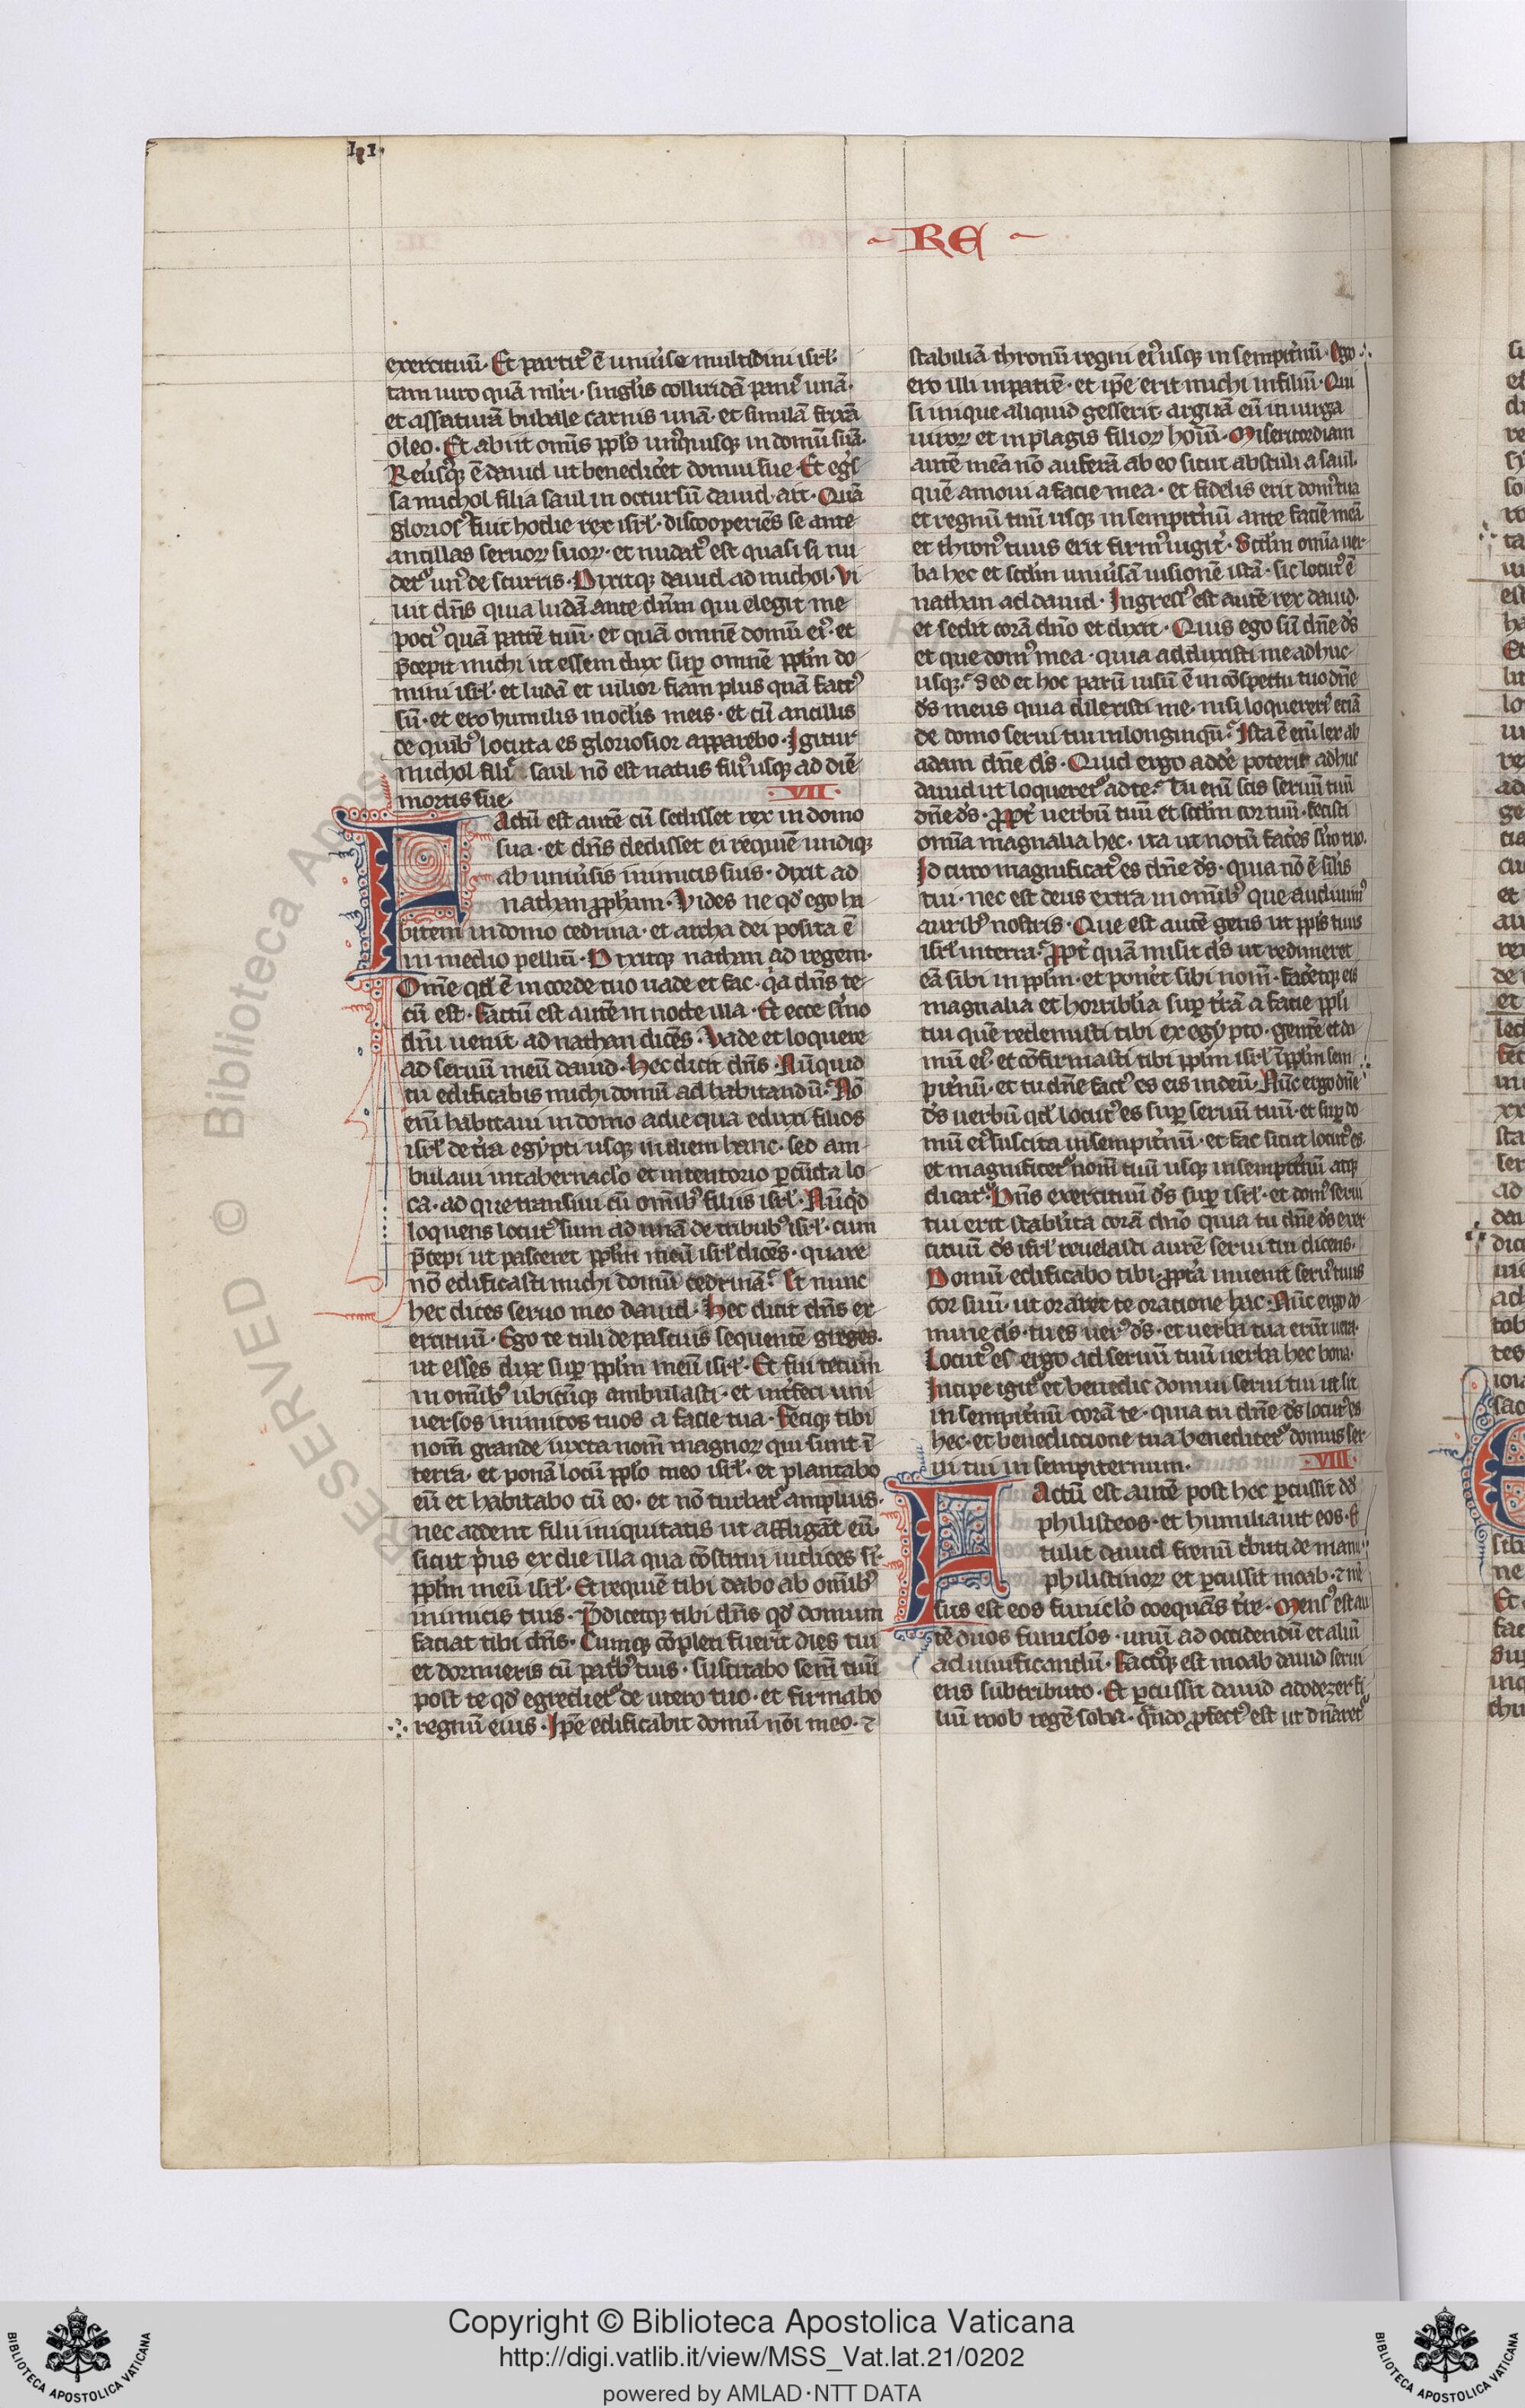 RE
exercituū. Et partit᷒ ē uniu̾se multidini isrl̾.
tam uiro quā mlr̄i. singlis̾ colliridā panis unā.
et assaturā bubale carnis unā. et similā frixā
oleo. Et abiit omīs ppl̄s unusquisq; in domū suā.
Reu̾susq; ē dauid ut benedicet̾ domui sue. Et eg̾s
sa michol filia saul in occursū dauid. ait. Quā
glorios᷒ fuit hodie rex isrl̾. discooperiēs se ante
ancillas seruoꝝ suoꝝ. et nudat᷒ est quasi si nu
det᷒ un᷒ de scurris. Dixitq; dauid ad michol. Vi
uit dn̄s quia ludā ante dn̄m qui elegit me
poci᷒ quā patrē tuū. et quā omnē domū ei᷒. et
p̄cepit michi ut essem dux suꝑ omnē pplm̄ do
mini isrl̾. et ludā et uilior fiam plus quā fact᷒
sū. et ero humilis in oclis̾ meis. et cū ancillis
de quib᷒ locuta es gloriosior apparebo. Igitur
michol filie saul nō est natus fili᷒ usq; ad diē
mortis sue. VII
Factū est autē cū sedisset rex in domo
sua. et dn̄s dedisset ei requiē undiq;
ab uniu̾sis inimicis suis. dixit ad
nathan pph̄am. Vides ne qd̾ ego ha
bitem in domo cedrina. et archa dei posita ē
in medio pelliū. Dixitq; nathan ad regem.
Om̄e qd̾ ē in corde tuo uade et fac. qa̾ dn̄s te
cū est. Factū est autē in nocte illa. Et ecce sermo
dn̄i uenit ad nathan dicēs. Vade et loquere
ad seruū meū dauid. Hec dicit dn̄s. Nūquid
tu edificabis michi domū ad habitandū. Nō
enī habitaui in domo a die qua eduxi filios
isrl̾ de tr̄a egypti usq; in diem hanc. sed am
bulaui in tabernaclo̾ et in tentorio ꝑ cūcta lo
ca. ad que transiui cū om̄ib᷒ filiis isrl̾. Nūqd̾
loquens locut᷒ sum ad unā de tribub᷒ isrl̾. cum
p̄cepi ut pasceret pplm̄ meū isrl̾ dicēs. quare
nō edificasti michi domū cedrinā. Et nunc
hec dices seruo meo dauid. Hec dicit dn̄s ex
ercituū. Ego te tuli de pascuis sequentē greges.
ut esses dux suꝑ pplm̄ meū isrl̾. Et fui tecum
in om̄ib᷒ ubicūq; ambulasti. et int̾feci uni
uersos inimicos tuos a facie tua. Feciq; tibi
nom̄ grande iuxta nom̄ magnoꝝ qui sunt ī
terra. et ponā locū pplo̾ meo isrl̾. et plantabo
eū et habitabo cū eo. et nō turbabit᷒ amplius.
nec addent filii iniquitatis ut affligāt eū.
sicut p̾us ex die illa qua cōstitui iudices sr̄
pplm̄ meū isrl̾. Et requiē tibi dabo ab om̄ib᷒
inimicis tuis. P̄dicetq; tibi dn̄s qd̾ domum
faciat tibi dn̄s. Cumq; cōpleti fuerīt dies tui
et dormieris cū patb̾᷒ tuis. suscitabo sem̄ tuū
post te qd̾ egrediet᷒ de utero tuo. et firmabo
regnū eius. Ipe̾ edificabit domū nōi meo. ⁊
stabiliā thronū regni ei᷒ usq; in sempit̾nū. Ego
ero illi in patrē. et ipe̾ erit michi in filiū. Qui
si inique aliquid gesserit arguā eū in uirga
uiroꝝ et in plagis filioꝝ hoīū. Misericordiam
autē meā nō auferā ab eo sicut abstuli a saul.
quē amoui a facie mea. et fidelis erit dom᷒ tua
et regnū tuū usq; in sempit̾nū ante faciē meā
et thron᷒ tuus erit firm᷒ iugit̾. Scdm̄ omīa uer
ba hec et scdm̄ uniu̾sā uisionē istā. sic locut᷒ ē
nathan ad dauid. Ingress᷒ est autē rex dauid.
et sedit corā dn̄o et dixit. Quis ego sū dn̄e ds̄
et que dom᷒ mea. quia adduxisti me adhuc
usq;. Sed et hoc parū uisū ē in cōspectu tuo dn̄e
ds̄ meus quia dilexisti me. nisi loquereris eciā
de domo serui tui in longinqū. Ista ē enī lex ab
adam dn̄e ds̄. Quid ergo addē poterit adhuc
dauid ut loqueret᷒ ad te. Tu enī scis seruū tuū
dn̄e ds̄. Propt̾ uerbū tuū et scdm̄ cor tuū. fecisti
omīa magnalia hec. ita ut notū faces̾ s̾uo tuo.
Idcirco magnificat᷒ es dn̄e ds̄. quia nō ē silis̾
tui. nec est deus extra in om̄ib᷒ que audiuim᷒
aurib᷒ nostris. Que est autē gens ut ppl̄s tuus
isrl̾ in terra. Propt̾ quā misit ds̄ ut redimeret
eā sibi in pplm̄. et ponet̾ sibi nom̄. facetq;̾ eis
magnalia et horribilia suꝑ t̾rā a facie ppl̾i
tui quē redemisti tibi ex egypto. gentē et do
mū ei᷒. et cōfirmasti tibi pplm̄ isrl̾ ī pplm̄ sem
pit̾nū. et tu dn̄e fact᷒ es eis in deū. Nūc ergo dn̄e
ds̄ uerbū qd̾ locut᷒ es suꝑ seruū tuū. et suꝑ do
mū ei᷒ suscita in sempit̾nū. et fac sicut locut᷒ es.
et magnificet᷒ nom̄ tuū usq; in sempit̾nū atq;
dicat᷒. Dn̄s exercituū ds̄ suꝑ isrl̾. et dom᷒ serui
tui erit stabilita corā dn̄o quia tu dn̄e ds̄ exer
cituū ds̄ isrl̾ reuelasti aurē serui tui dicens.
Domū edificabo tibi. propt̾a inuenit seru᷒ tuus
cor suū. ut oraret te oratione hac. Nūc ergo do
mine ds̄. tu es uer᷒ ds̄. et uerba tua erūt uera.
Locut᷒ es ergo ad seruū tuū uerba hec bona.
Incipe igit᷒ et benedic domui serui tui ut sit
in sempit̾nū corā te. quia tu dn̄e ds̄ locut᷒ es
hec. et benediccione tua benedicet᷒ domus ser
ui tui in sempiternum. VIII
Factū est autē post hec ꝑcussit dd̾
philisteos. et humiliauit eos. Et
tulit dauid frenū t̾buti de manu
philistinoꝝ et ꝑcussit moab. ⁊ mē
sus est eos funiclo̾ coequās tr̄e. Mens᷒ est au
tē duos funiclos̾. unū ad occidendū et aliū
ad uiuificandū. Factusq; est moab dauid serui
ens sub tributo. Et ꝑcussit dauid adodezer fi
liū roob regē soba. qn̄do ꝓfect᷒ est ut dn̄aret᷒
Copyright © Biblioteca Apostolica Vaticana
http://digi.vatlib.it/view/MSS_Vat.lat.21/0202
powered by AMLAD·NTT DATA